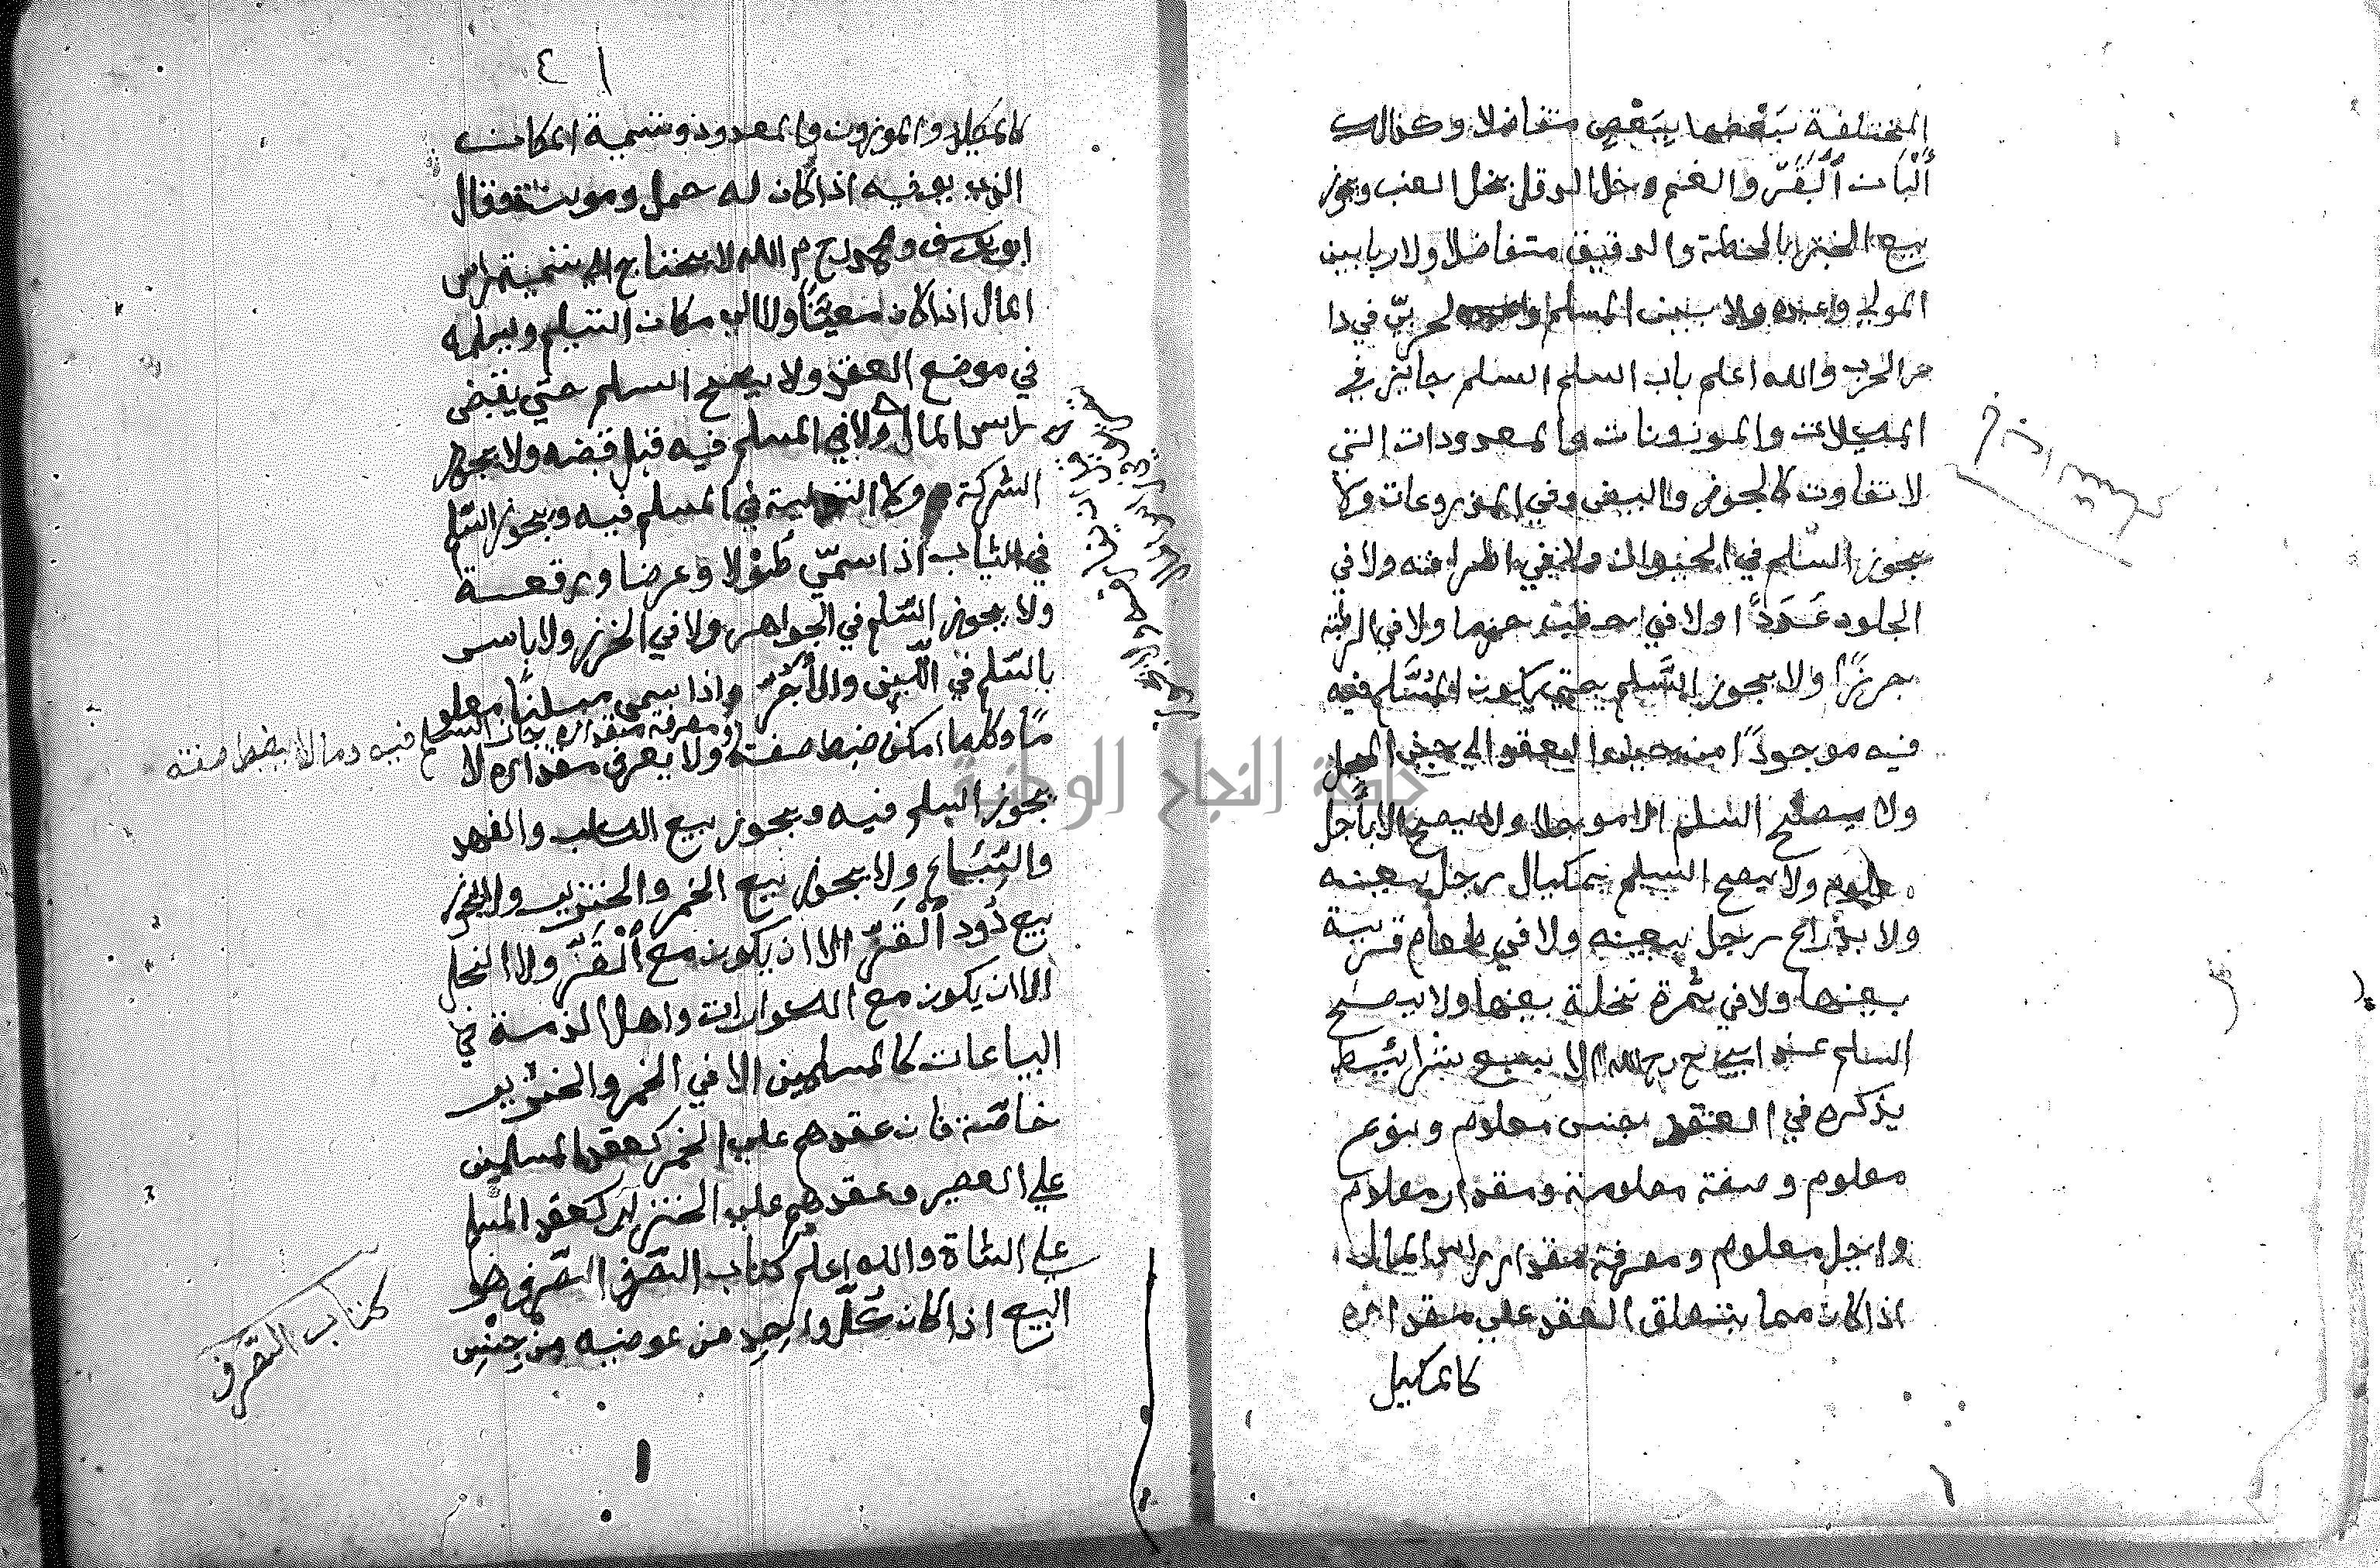 المختلفة بَعْضها بِبَعْضٍ متفاضلا وكذالك
أَلْبَان ٱلْبَقَرّ والغنم وخل الدقل بخل العنب ويجوز
بيع الخبز بالحنطة والدقيق متفاضلا ولا ربا بين
المولي وعبده ولا بين المسلم والحربيّ في دا
ر الحرب والله اعلم باب السلم السلم جائز في
المكيلات والموزونات والمعدودات التي
لا تفاوت كالجوز والبيض وفي المذروعات ولا
يجوز السّلم في الحيوان ولا في اطرافه ولا في
الجلود عَدَدًا ولا في الحطب حزما ولا في الرطبة
جرزًا ولا يجوز السَّلم حتي يكون المُسْلَم فيه
فيه موجودًا من حين العقد الي حين المحل
ولا يصح السّلم الا موجلا ولا يصح الا بأجل
معلوم ولا يصح السلم بمكيال رجل بعينه
ولا بذراع رجل بعينه ولا في طعام قرية
بعينها ولا في ثمرة نخلة بعينها ولا يصح
السلم عند ابي ح رح الله الا بسبع شرائط
يذكره في العقد جنس معلوم ونوع
معلوم وصفة معلومة ومقدار معلوم
واجل معلوم ومعرفة مقدار راس المال
اذا كان مما يتعلق العقد علي مقداره
كالمكيل
٤١
كالمكيل والموزون والمعدود وتسمية المكان
الذي يوفيه اذا كان له حمل ومونة فقال
ابو يوسف ومحمد رح م الله لا يحتاج الي تسمية راس
المال اذا كان معيّنًا ولا الي مكان التسليم ويسلمه
في موضع العقد ولا يصح السلم حتي يقبض
راس المال ولا في المسلم فيه قبل قبضه ولا يجوز
الشركة ولا التولية في المسلم فيه ويجوز السّلم
في الثياب اذا سمّي طُوْلا وعرضا ورقعة
ولا يجوز السّلم في الجواهر ولا في الخرز ولا باس
بالسّلم في اللّبِن والأجرّ واذا سمي ملبنًا معلو
مًا وكلما امكن ضبط صفته ولا يعرف مقداره لا
ومعرفة مقداره جاز السلم فيه وما لا يضبط صفته
يجوز السلم فيه ويجوز بيع الكلب والفهد
والسِّبَاع ولا يجوز بيع الخمر والخنزير ولا يجوز
بيع دُود ٱلْقَزّ الا ان يكون مع ٱلْقَزّ ولا النحل
الا ان يكون مع الكوارات واهل الذمة في
البياعات كالمسلمين الا في الخمر والخنزير
خاصّة فان عقدهم علي الخمر كعقد المسلمين
علي العصير وعقدهم علي الخنزير كعقد المسلم
علي الشاة والله اعلم كتاب الصّرف الصّرف هو
البيع اذا كان كُلّ واحِدٍ من عوضيه مِنْ جِنْسِ
كتاب الصّرف
جامعة النجاح الوطنية